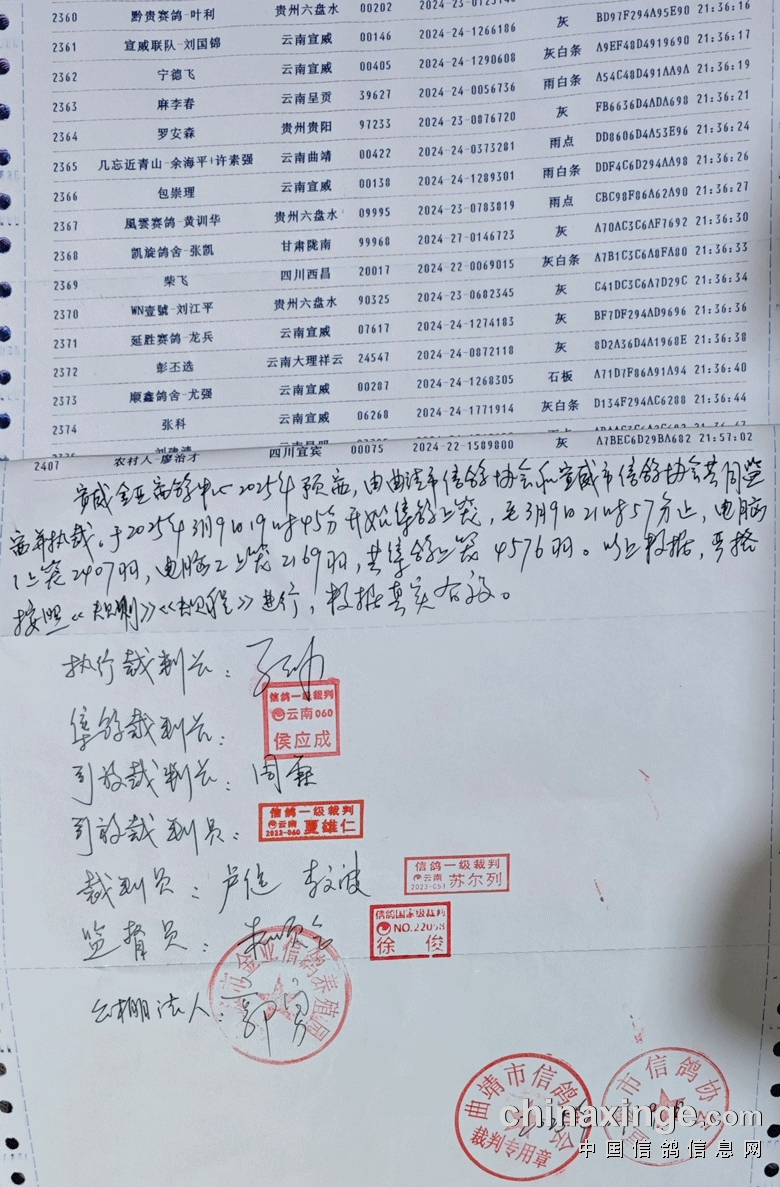 2360 黔贵赛鸽-叶利 贵州六盘水 00202 灰 BD97F294A95E90 21:36:16
2361 宣威联队-刘国锦 云南宣威 00146 2024-24-1266186 灰白条 A9EF48D4919690 21:36:17
2362 宁德飞 云南宣威 00405 2024-24-1290608 雨白条 A54C48D491AA9A 21:36:19
2363 麻李春 云南呈贡 39627 2024-24-0056736 灰 FB6636D4ADA698 21:36:21
2364 罗安森 贵州贵阳 97233 2024-23-0876720 雨点 DD8606D4A53E96 21:36:24
2365 几忘近青山-余海平+许素强 云南曲靖 00422 2024-24-0373281 雨白条 DDF4C6D294AA98 21:36:26
2366 包崇理 云南宣威 00138 2024-24-1289301 雨点 CBC98F86A62A90 21:36:27
2367 風雲赛鸽-黄训华 贵州六盘水 09995 2024-23-0783819 灰 A70AC3C6AF7692 21:36:30
2368 凯旋鸽舍-张凯 甘肃陇南 99968 2024-27-0146723 灰白条 A7B1C3C6A8FA80 21:36:33
2369 柴飞 四川西昌 20017 2024-22-0069015 灰 C41DC3C6A7D29C 21:36:34
2370 WN壹號-刘江平 贵州六盘水 90325 2024-23-0682345 灰 BF7DF294AD9696 21:36:36
2371 延胜赛鸽-龙兵 云南宣威 07617 2024-24-1274183 灰 8D2A36D4A1968E 21:36:38
2372 彭丕选 云南大理祥云 24547 2024-24-0872118 石板 A71D7F86A91A94 21:36:40
2373 顺鑫鸽舍-尤强 云南宣威 00287 2024-24-1268305 灰白条 D134F294AC6288 21:36:44
2374 张科 云南宣威 06268 2024-24-1771914
2407 农村人 廖治才 四川宜宾 00075 2024-22-1589800 灰 A7BEC6D29BA682 21:57:02
宣威金亚赛鸽中心2025年预赛，由曲靖市信鸽协会和宣威市信鸽协会共同监
赛并执裁。于2025年3月9日19时45分开始集鸽上笼，至3月9日21时57分止，电脑
1上笼2407羽，电脑2上笼2169羽，共集鸽上笼4576羽。以上数据，严格
按照《规则》《规程》进行，数据真实有效。
执行裁判长：
信鸽一级裁判
云南060
侯应成
集鸽裁判长：
司放裁判长：周
司放裁判员：
信鸽一级裁判
云南
2023-060 夏雄仁
裁判员：卢 李波
信鸽一级裁判
云南
2023-051 苏尔列
监督员：
信鸽国家级裁判
NO.22058
徐俊
公棚法人：郭勇
市金亚信鸽养殖
曲靖市信鸽协会
裁判专用章
市信鸽协
chinaxinge.com
中国信鸽信息网